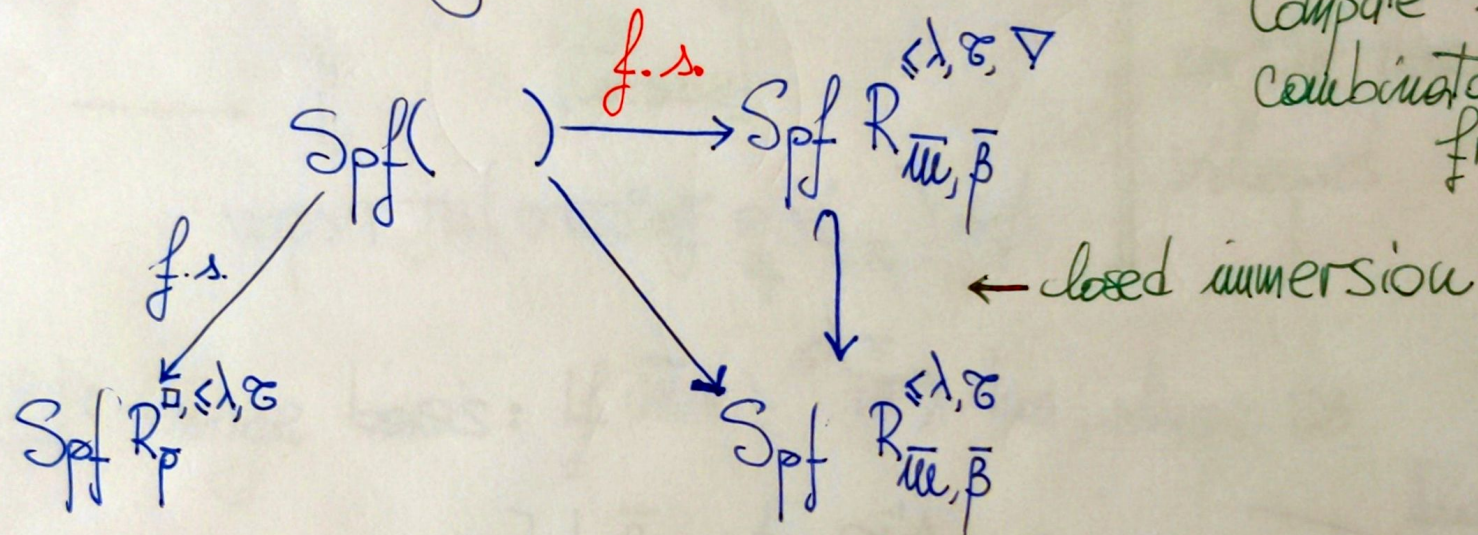 Compute
combinato
f. s.
Spf( ) → Spf R^{≤λ, τ, ∇}_{\overline{𝔐}, \overline{β}}
f.s.
← closed immersion
Spf R^{□, ≤λ, τ}_{\overline{ρ}}
Spf R^{≤λ, τ}_{\overline{𝔐}, \overline{β}}